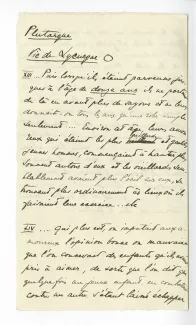 Plutarque
Vie de Lycurgue
XIII ... Puis lorsqu'ils étaient parvenus jus-
ques à l'âge de douze ans ils ne portaient
de là en avant plus de sayons et on leur
donnait tous les ans une robe simple
seulement ... Environ cet âge leurs amou-
reux qui étaient les plus et gentils
jeunes hommes, commençaient à hanter plus
souvent autour d'eux et les vieillards sem-
blablement avaient plus l'œil sur eux, se
trouvant plus ordinairement ès lieux où ils
faisaient leurs exercices ... etc
XIV ... Qui plus est on imputait aux a-
moureux l'opinion bonne ou mauvaise
que l'on concevait des enfants qu'ils avaient
pris à aimer, de sorte que l'on dit que
quelquefois un jeune enfant en combattant
contre un autre s'étant laissé échapper